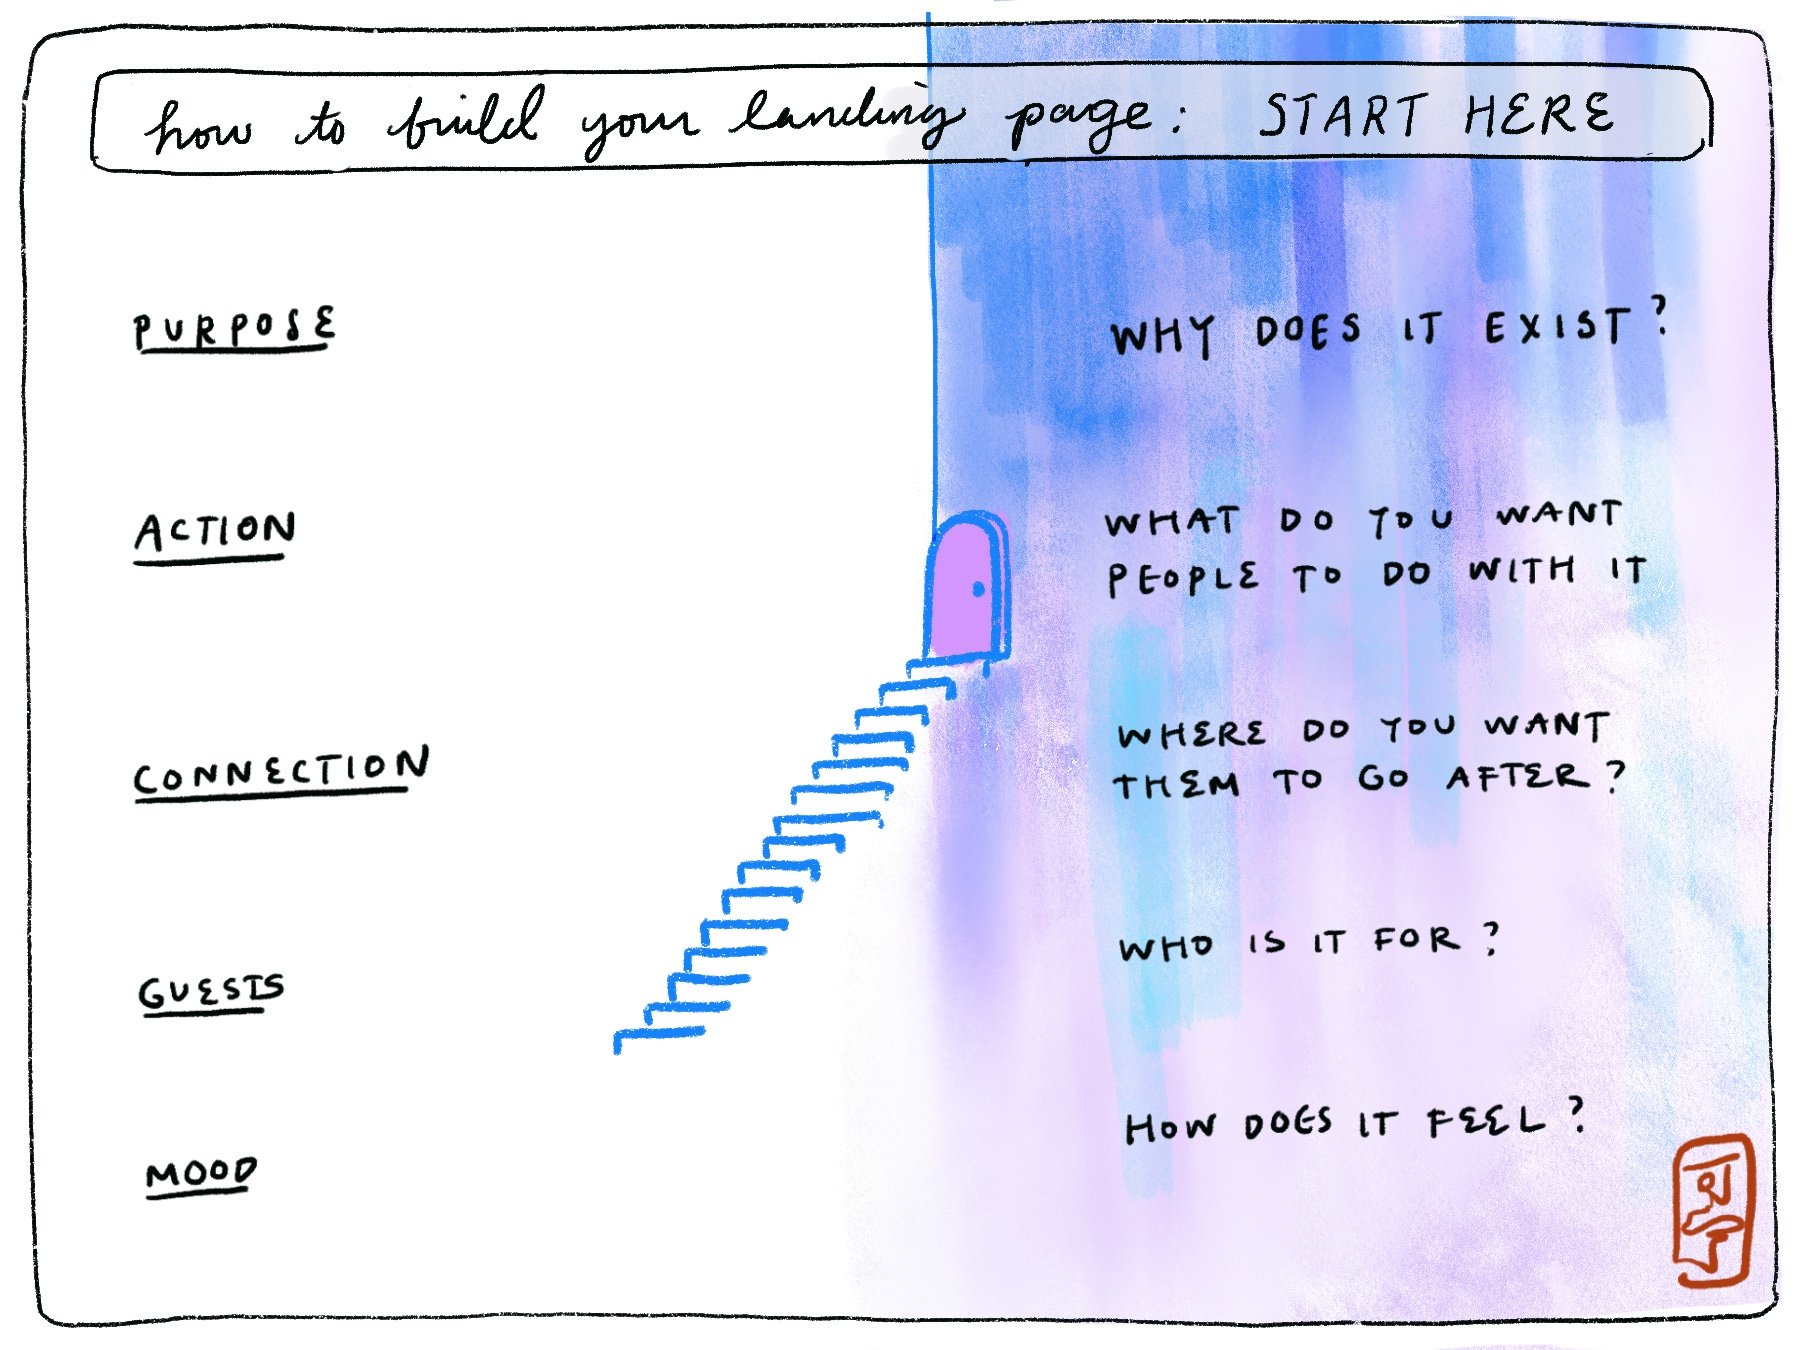 how to build your landing page: START HERE
PURPOSE
WHY DOES IT EXIST?
ACTION
WHAT DO YOU WANT
PEOPLE TO DO WITH IT
CONNECTION
WHERE DO YOU WANT
THEM TO GO AFTER?
GUESTS
WHO IS IT FOR?
MOOD
HOW DOES IT FEEL?